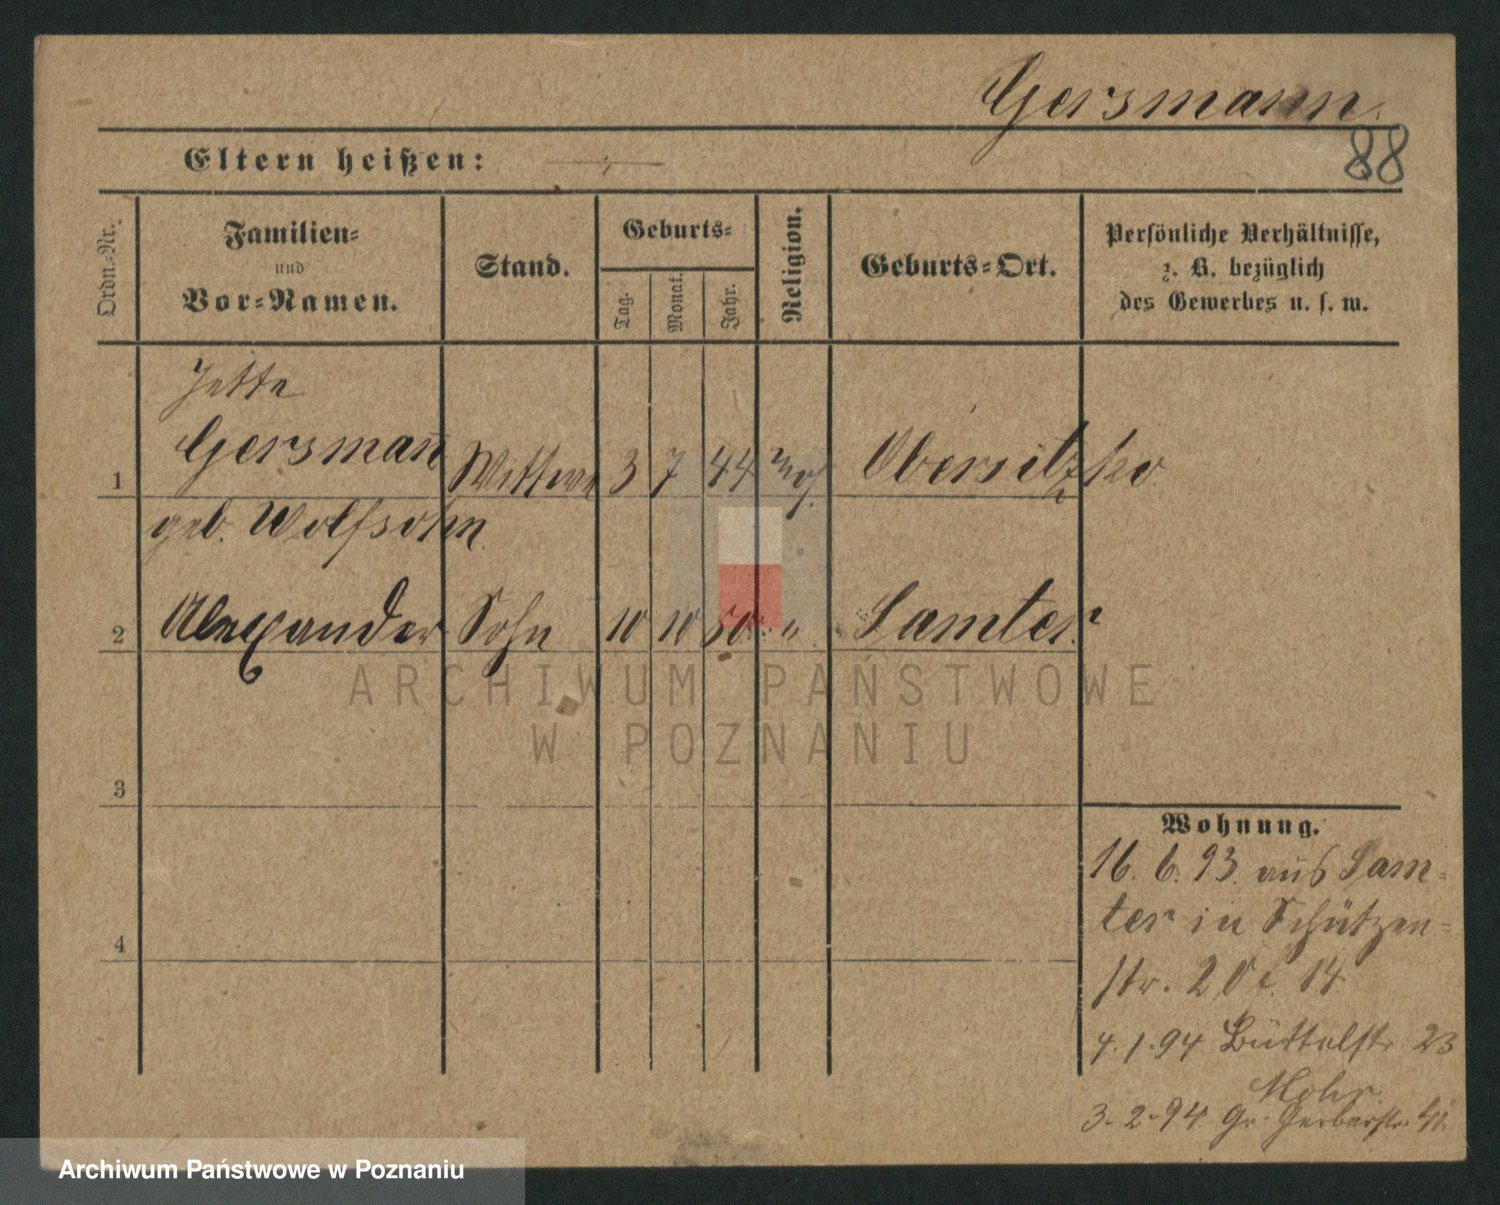 Gersmann.
88
Eltern heißen:
Ordn.-Nr.
Familien-
und
Vor-Namen.
Stand.
Geburts-
Tag.
Monat.
Jahr.
Religion.
Geburts-Ort.
Persönliche Verhältnisse,
z. B. bezüglich
des Gewerbes u. s. w.
Jette
Gersmann̄
1 Wittwe 3 7 44 Obersitzko
geb. Wolfsohn.
2 Alexander Sohn 10 10 " Samter.
3
4
ARCHIWUM PAŃSTWOWE
W POZNANIU
Wohnung.
16. 6. 93. aus Sam-
ter in Schützen-
str. 14.
4. 1. 94 Büttelstr. 23
Mohr.
3. 2. 94 Gr. Gerberstr.
Archiwum Państwowe w Poznaniu